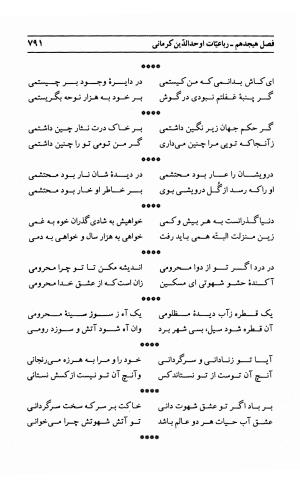 فصل هیجدهم ـ رباعیّات اوحدالدّین کرمانی ۷۹۱
****
ای کاش بدانمی که من کیستمی در دایرهٔ وجود بر چیستمی
گر پنبهٔ غفلتم نبودی در گوش بر خود به هزار نوحه بگریستمی
****
گر حکم جهان زیر نگین داشتمی بر خاک درت نثار چین داشتمی
زآنجا که تویی مرا چنین می‌داری گر من تومی تو را چنین داشتمی
****
درویشان را عار بود محتشمی در دیدهٔ شان نار بود محتشمی
او را که رسد از گُل درویشی بوی بر خاطر او خار بود محتشمی
****
دنیا گذرانست به هر بیش و کمی خواهیش به شادی گذران خوه به غمی
زین منزلت البتّه همی باید رفت خواهی به هزار سال و خواهی به دمی
****
در درد اگر تو از دوا محرومی اندیشه مکن تا تو چرا محرومی
آکندهٔ حشو شهوتی ای مسکین زان است که از عشق خدا محرومی
****
یک قطره زآب دیدهٔ مظلومی یک آه ز سوز سینهٔ محرومی
آن قطره شود سیل، بسی شهر برد وان آه شود آتش و سوزد رومی
****
آیا تو زنادانی و سرگردانی خود را و مرا به هرزه می‌رنجانی
وآنچ آن توست از تو نستاندکس وآنچ آن تو نیست از کس نستانی
****
بر باد اگر تو عشق شهوت دانی خاکت بر سر که سخت سرگردانی
عشق آب حیات هر دو عالم باشد تو آتش شهوتش چرا می‌خوانی
****